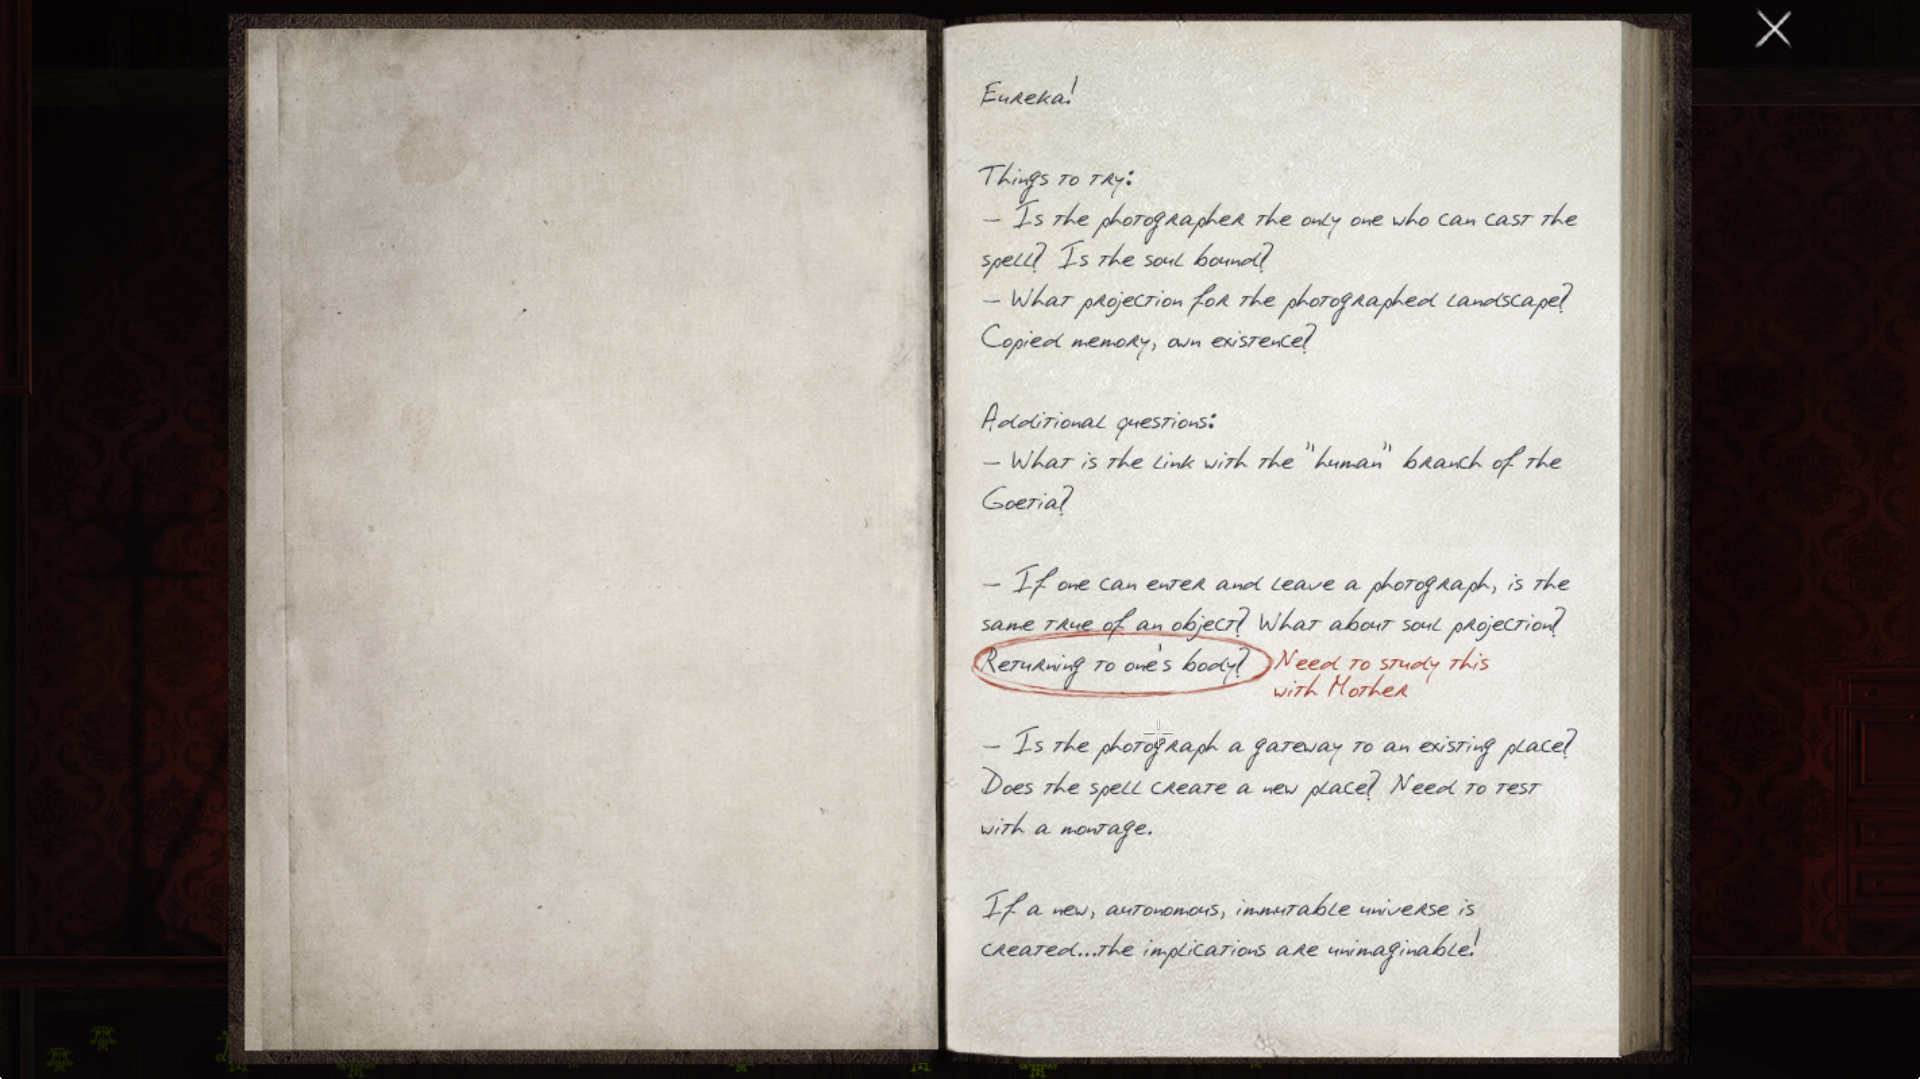 Eureka!
Things to try:
– Is the photographer the only one who can cast the
spell? Is the soul bound?
– What projection for the photographed landscape?
Copied memory, own existence?
Additional questions:
– What is the link with the "human" branch of the
Goetia?
– If one can enter and leave a photograph, is the
same true of an object? What about soul projection?
Returning to one's body? Need to study this
with Mother
– Is the photograph a gateway to an existing place?
Does the spell create a new place? Need to test
with a montage.
If a new, autonomous, immutable universe is
created...the implications are unimaginable!